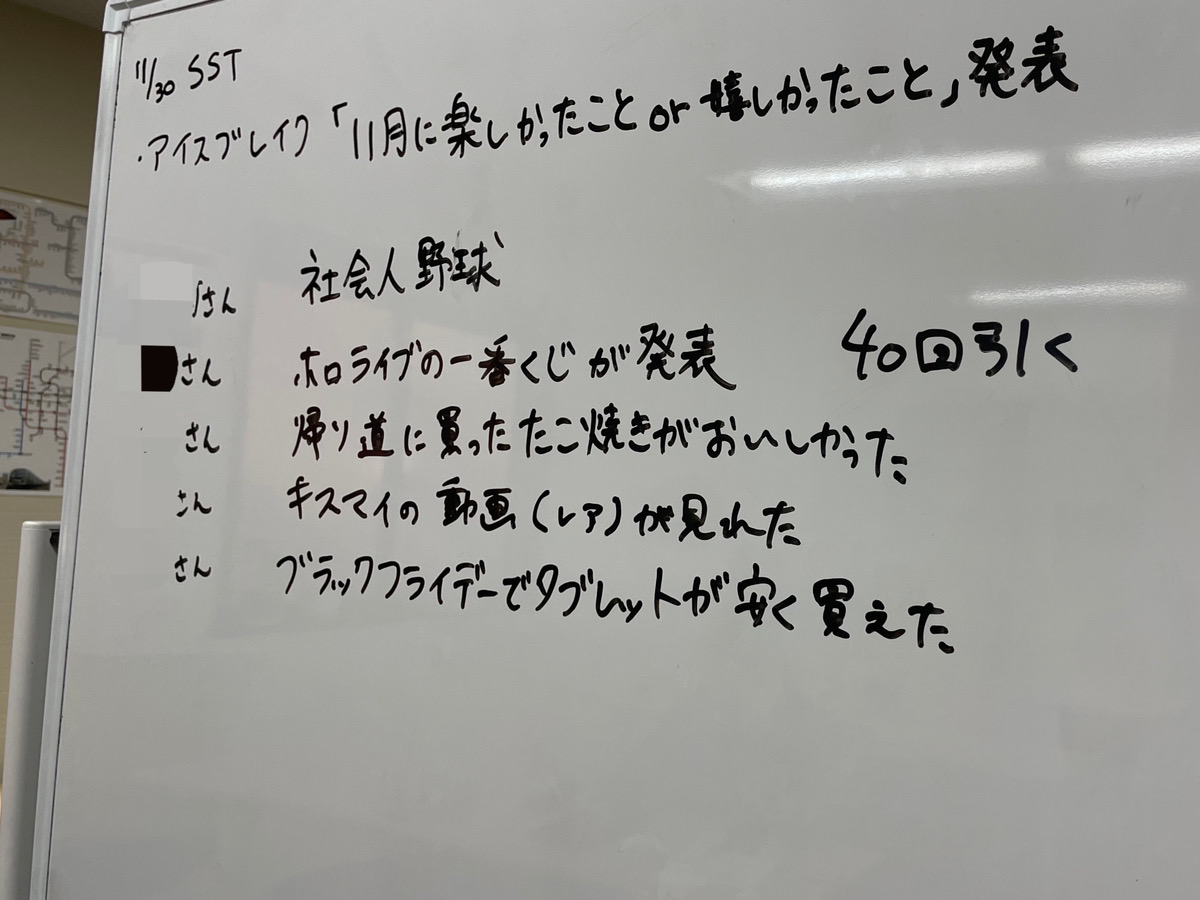 11/30 SST
・アイスブレイク「11月に楽しかったこと or 嬉しかったこと」発表
さん 社会人野球
さん ホロライブの一番くじが発表 40回引く
さん 帰り道に買ったたこ焼きがおいしかった
さん キスマイの動画(レア)が見れた
さん ブラックフライデーでタブレットが安く買えた